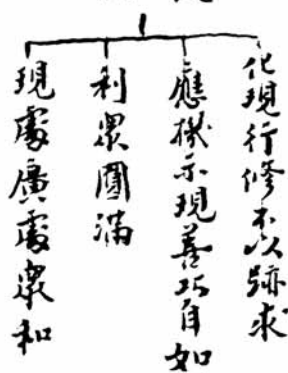 化現行修不以跡求
應機示現善巧自如
利眾圓滿
現處廣處眾和